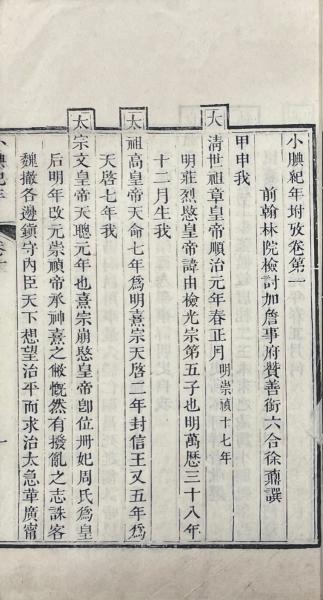 小腆紀年坿攷卷第一
前翰林院檢討加詹事府贊善銜六合徐鼒譔
甲申我
大清世祖章皇帝順治元年春正月明崇禎十七年
明莊烈愍皇帝諱由檢光宗第五子也明萬歷三十八年
十二月生我
太祖高皇帝天命七年爲明熹宗天啓二年封信王又五年爲
天啓七年我
太宗文皇帝天聰元年也熹宗崩愍皇帝卽位冊妃周氏爲皇
后明年改元崇禎帝承神熹之敝慨然有撥亂之志誅客
魏撤各邊鎭守內臣天下想望治平而求治太急革廣甯
小腆紀年
卷第一
一